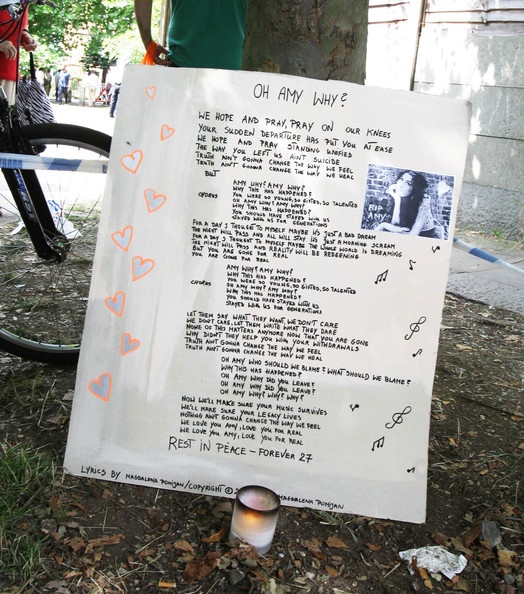 OH AMY WHY?
WE HOPE AND PRAY, PRAY ON OUR KNEES
YOUR SUDDEN DEPARTURE HAS PUT YOU AT EASE
WE HOPE AND PRAY STANDING UNIFIED
THE WAY YOU LEFT US AINT SUICIDE
TRUTH AIN'T GONNA CHANGE THE WAY WE FEEL
TRUTH AIN'T GONNA CHANGE THE WAY WE HEAL
BUT
AMY WHY? AMY WHY?
WHY THIS HAS HAPPENED?
YOU WERE SO YOUNG, SO GIFTED, SO TALENTED
CHORUS OH AMY WHY? AMY WHY?
WHY THIS HAS HAPPENED?
YOU SHOULD HAVE STAYED WITH US
STAYED WITH US FOR GENERATIONS
RIP
AMY
FOR A DAY I THOUGHT TO MYSELF MAYBE ITS JUST A BAD DREAM
THE NIGHT WILL PASS AND ALL WILL STAY JUST A MORNING SCREAM
FOR A DAY I THOUGHT TO MYSELF MAYBE THE WHOLE WORLD IS DREAMING
THE NIGHT WILL PASS AND REALITY WILL BE REDEEMING
BUT YOU ARE GONE FOR REAL
YOU ARE GONE FOR REAL
AMY WHY? AMY WHY?
WHY THIS HAS HAPPENED?
YOU WERE SO YOUNG, SO GIFTED, SO TALENTED
CHORUS OH AMY WHY? AMY WHY?
WHY THIS HAS HAPPENED?
YOU SHOULD HAVE STAYED WITH US
STAYED WITH US FOR GENERATIONS
LET THEM SAY WHAT THEY WANT, WE DON'T CARE
WE DON'T CARE, LET THEM WRITE WHAT THEY DARE
NONE OF THIS MATTERS ANYMORE NOW THAT YOU ARE GONE
WHY DIDN'T THEY HELP YOU WITH YOUR WITHDRAWALS
TRUTH AIN'T GONNA CHANGE THE WAY WE FEEL
TRUTH AIN'T GONNA CHANGE THE WAY WE HEAL
OH AMY WHO SHOULD WE BLAME? WHAT SHOULD WE BLAME?
WHY THIS HAS HAPPENED?
OH AMY WHY DID YOU LEAVE?
OH AMY WHY DID YOU LEAVE?
OH AMY WHY? WHY? WHY?
NOW WE'LL MAKE SURE YOUR MUSIC SURVIVES
WE'LL MAKE SURE YOUR LEGACY LIVES
NOTHING AIN'T GONNA CHANGE THE WAY WE FEEL
WE LOVE YOU AMY, LOVE YOU FOR REAL
WE LOVE YOU AMY, LOVE YOU FOR REAL
REST IN PEACE - FOREVER 27
LYRICS BY MAGDALENA POMIJAN/COPYRIGHT © MAGDALENA POMIJAN